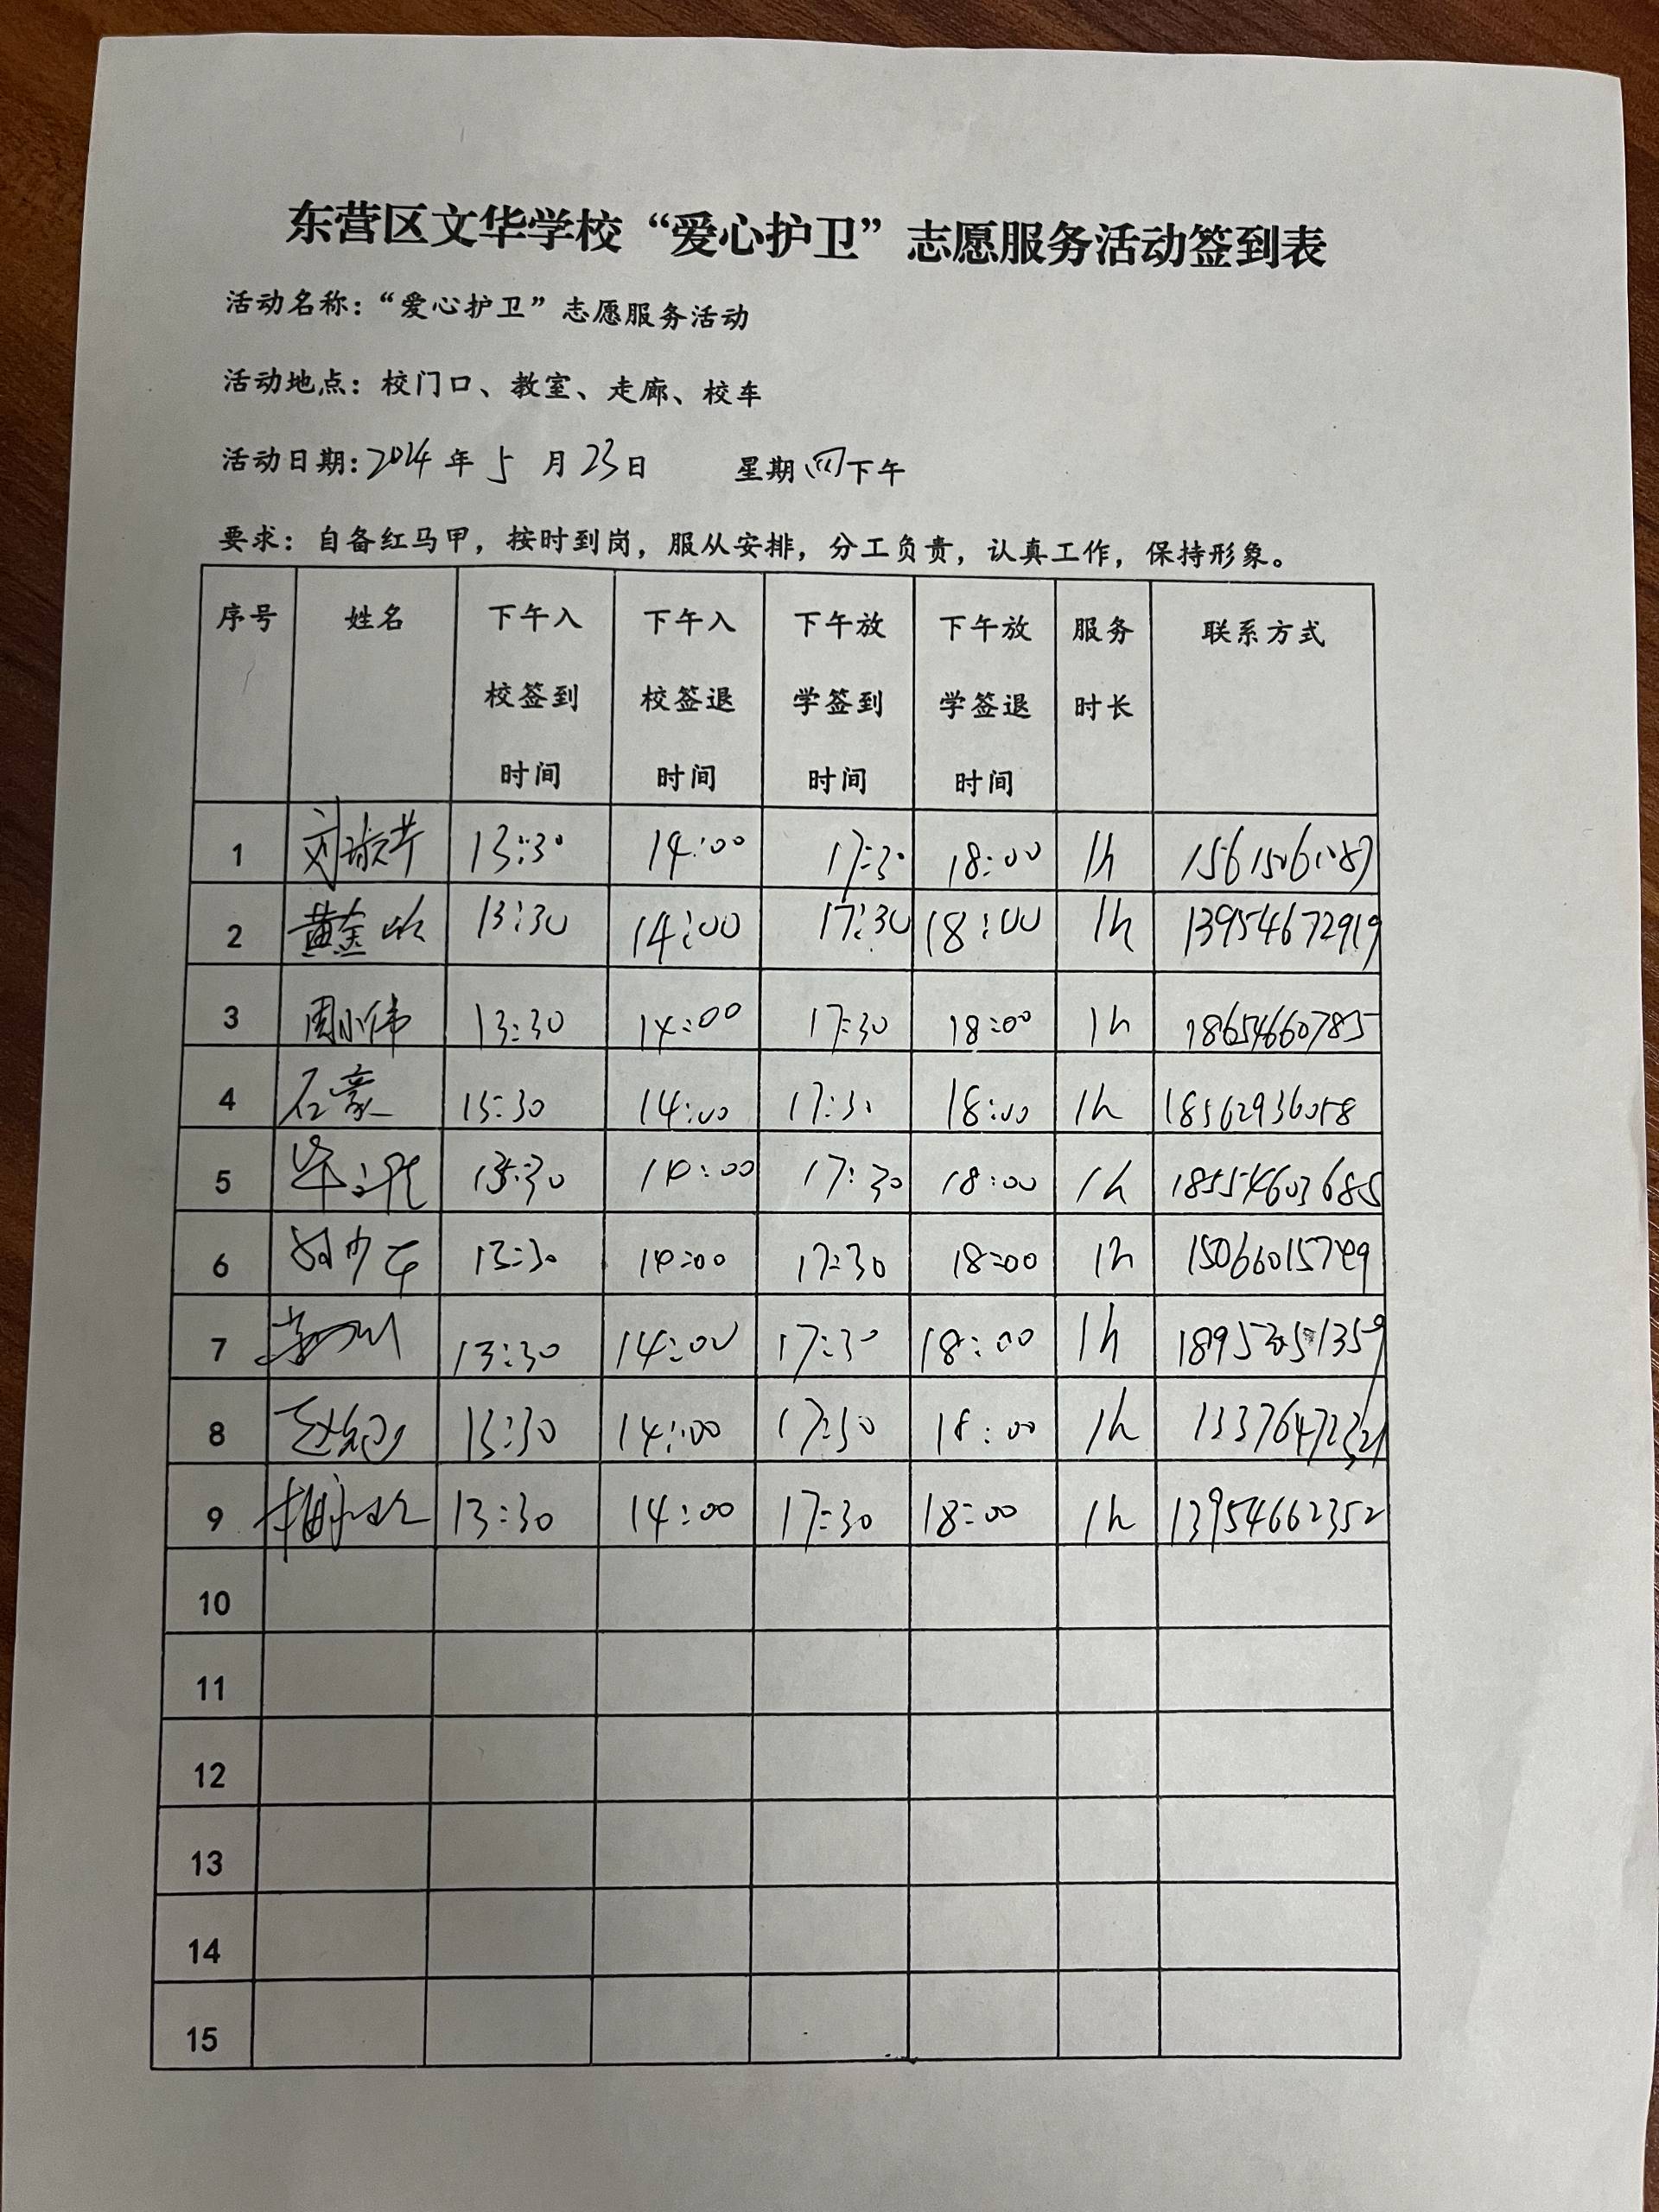 东营区文华学校“爱心护卫”志愿服务活动签到表
活动名称：“爱心护卫”志愿服务活动
活动地点：校门口、教室、走廊、校车
活动日期:2024年 5 月 23日 星期四下午
要求：自备红马甲，按时到岗，服从安排，分工负责，认真工作，保持形象。
序号 姓名 下午入校签到时间 下午入校签退时间 下午放学签到时间 下午放学签退时间 服务时长 联系方式
1 刘 13:30 14:00 17:30 18:00 1h
2 黄金 13:30 14:00 17:30 18:00 1h 13954672919
3 周小伟 13:30 14:00 17:30 18:00 1h 18654660785
4 石豪 13:30 14:00 17:30 18:00 1h 18562936058
5 13:30 14:00 17:30 18:00 1h 18554603685
6 13:30 14:00 17:30 18:00 1h 15066015749
7 13:30 14:00 17:30 18:00 1h
8 赵 13:30 14:00 17:30 18:00 1h
9 13:30 14:00 17:30 18:00 1h 13954662352
10
11
12
13
14
15